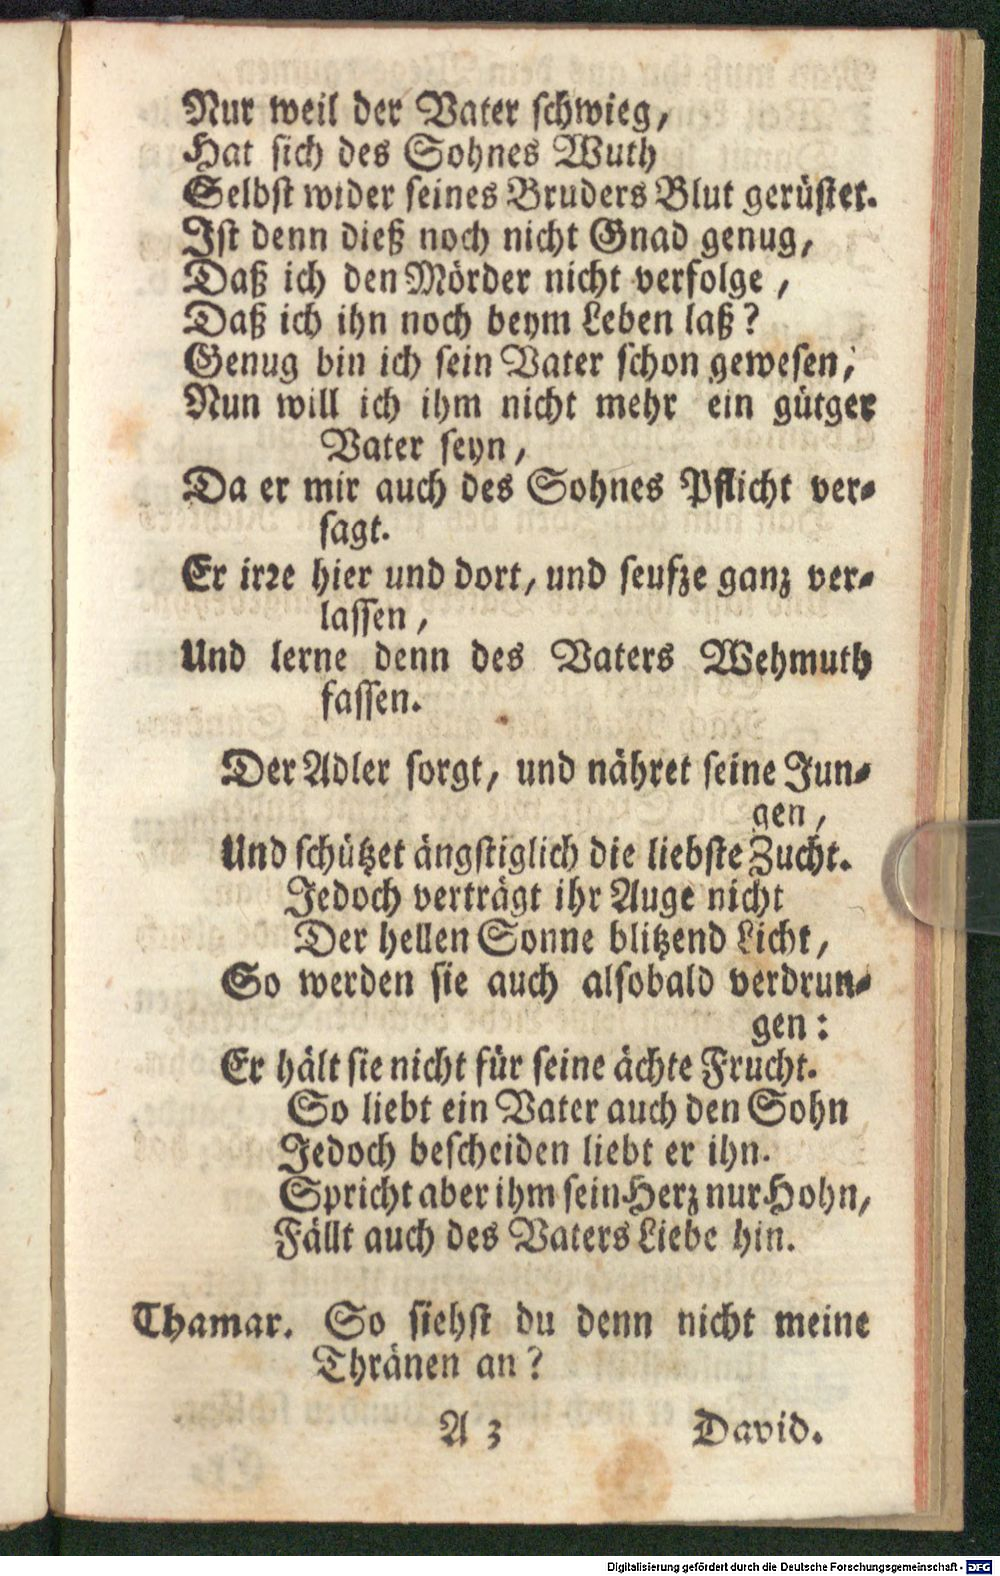 Nur weil der Vater schwieg,
Hat sich des Sohnes Wuth
Selbst wider seines Bruders Blut gerüstet.
Ist denn dieß noch nicht Gnad genug,
Daß ich den Mörder nicht verfolge,
Daß ich ihn noch beym Leben laß?
Genug bin ich sein Vater schon gewesen;
Nun will ich ihm nicht mehr ein gütger
Vater seyn,
Da er mir auch des Sohnes Pflicht ver-
sagt.
Er irre hier und dort, und seufze ganz ver-
lassen,
Und lerne denn des Vaters Wehmuth
fassen.
Der Adler sorgt, und nähret seine Jun-
gen,
Und schützet ängstiglich die liebste Zucht.
Jedoch verträgt ihr Auge nicht
Der hellen Sonne blitzend Licht,
So werden sie auch alsobald verdrun-
gen:
Er hält sie nicht für seine ächte Frucht.
So liebt ein Vater auch den Sohn
Jedoch bescheiden liebt er ihn.
Spricht aber ihm sein Herz nur Hohn,
Fällt auch des Vaters Liebe hin.
Thamar. So siehst du denn nicht meine
Thränen an?
A 3 David.
Digitalisierung gefördert durch die Deutsche Forschungsgemeinschaft - DFG